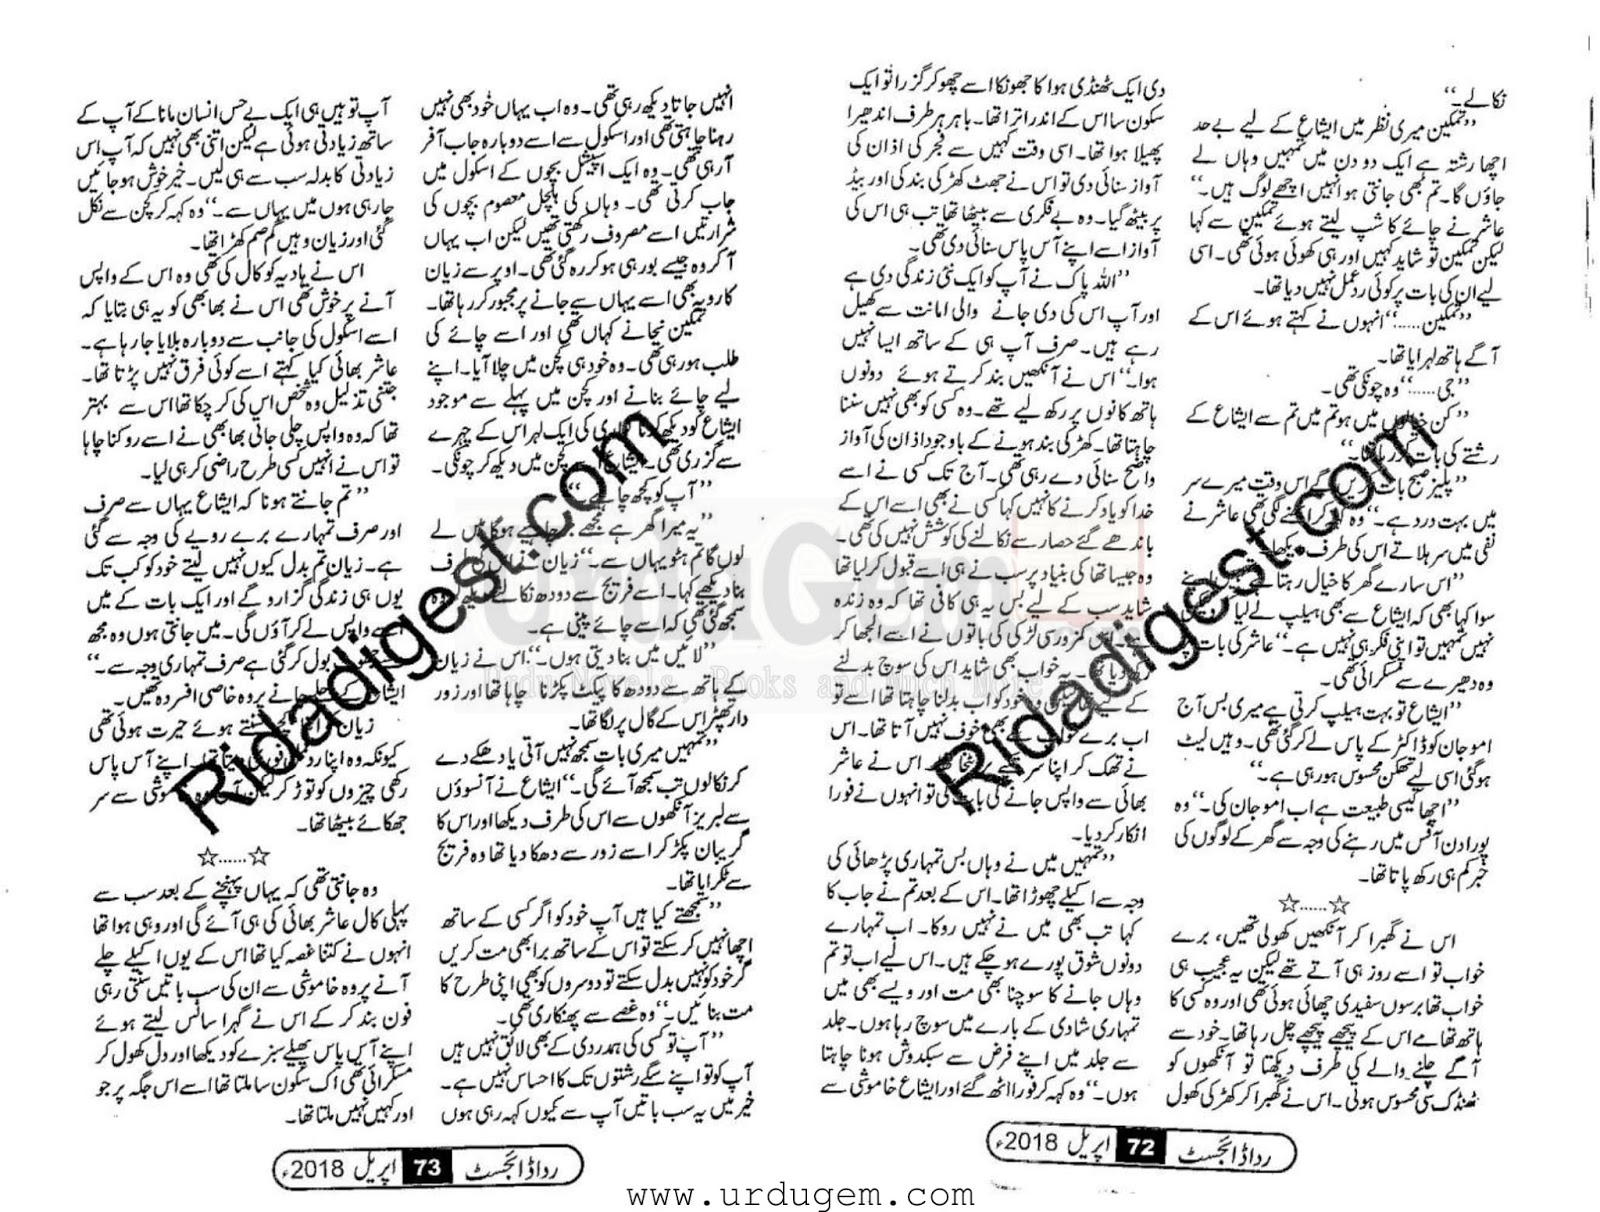 نکالے۔‘‘
’’تمکین میری نظر میں ایشاع کے لیے بے حد
اچھا رشتہ ہے ایک دو دن میں تمہیں وہاں لے
جاؤں گا۔ تم بھی جانتی ہو انہیں اچھے لوگ ہیں۔‘‘
عاشر نے چائے کا شپ لیتے ہوئے تمکین سے کہا
لیکن تمکین تو شاید کہیں اور ہی کھوئی ہوئی تھی۔ اسی
لیے ان کی بات پر کوئی ردعمل نہیں دیا تھا۔
’’تمکین......‘‘ انہوں نے کہتے ہوئے اس کے
آگے ہاتھ لہرایا تھا۔
’’جی......‘‘ وہ چونکی تھی۔
’’کن میں ہو تم میں تم سے ایشاع کے
رشتے کی بات
’’پلیز صبح بات گے اس وقت میرے سر
میں بہت درد ہے۔‘‘ وہ لگی تھی عاشر نے
نفی میں سر ہلاتے اس کی طرف دیکھا
’’اس سارے گھر کا خیال رہتا ہے
سوا کہا بھی کہ ایشاع سے بھی ہیلپ لے لیا
نہیں تمہیں تو اپنی فکر ہی نہیں ہے۔‘‘ عاشر کی بات پر
وہ دھیرے سے مسکرائی تھی۔
’’ایشاع تو بہت ہیلپ کرتی ہے میری بس آج
امو جان کو ڈاکٹر کے پاس لے کر گئی تھی۔ وہیں لیٹ
ہو گئی اسی لیے تھکن محسوس ہو رہی ہے۔‘‘
’’اچھا کیسی طبیعت ہے اب امو جان کی۔‘‘ وہ
پورا دن آفس میں رہنے کی وجہ سے گھر کے لوگوں کی
خبر کم ہی رکھ پاتا تھا۔
☆......☆
اس نے گھبرا کر آنکھیں کھولی تھیں، برے
خواب تو اسے روز ہی آتے تھے لیکن یہ عجیب ہی
خواب تھا برسوں سفیدی چھائی ہوئی تھی اور وہ کسی کا
ہاتھ تھامے اس کے پیچھے پیچھے چل رہا تھا۔ خود سے
آگے چلنے والے کی طرف دیکھتا تو آنکھوں کو
ٹھنڈک سی محسوس ہوتی۔ اس نے گھبرا کر کھڑکی کھول
دی ایک ٹھنڈی ہوا کا جھونکا اسے چھو کر گزرا تو ایک
سکون سا اس کے اندر اترا تھا۔ باہر ہر طرف اندھیرا
پھیلا ہوا تھا۔ اسی وقت کہیں سے فجر کی اذان کی
آواز سنائی دی تو اس نے جھٹ کھڑکی بند کی اور بیڈ
پر بیٹھ گیا۔ وہ بے فکری سے بیٹھا تھا تب ہی اس کی
آواز اسے اپنے آس پاس سنائی دی تھی۔
’’اللہ پاک نے آپ کو ایک نئی زندگی دی ہے
اور آپ اس کی دی جانے والی امانت سے کھیل
رہے ہیں۔ صرف آپ ہی کے ساتھ ایسا نہیں
ہوا۔‘‘ اس نے آنکھیں بند کرتے ہوئے دونوں
ہاتھ کانوں پر رکھ لیے تھے۔ وہ کسی کو بھی نہیں سننا
چاہتا تھا۔ کھڑکی بند ہونے کے باوجود اذان کی آواز
واضح سنائی دے رہی تھی۔ آج تک کسی نے اسے
خدا کو یاد کرنے کا نہیں کہا کسی نے بھی اسے اس کے
باندھے گئے حصار سے نکالنے کی کوشش نہیں کی تھی۔
وہ جیسا تھا کی بنیاد پر سب نے ہی اسے قبول کر لیا تھا
شاید سب کے لیے بس یہ ہی کافی تھا کہ وہ زندہ
اسی کمزور سی لڑکی کی باتوں نے اسے الجھا کر
یہ خواب بھی شاید اس کی سوچ بدلنے
کے لیے خود کو اب بدلنا چاہتا تھا اسے تو
اب برے بھی خوف نہیں آتا تھا۔ اس
نے تھک کر اپنا سر اس نے عاشر
بھائی سے واپس جانے کی بات کی تو انہوں نے فورا
انکار کر دیا۔
’’تمہیں میں نے وہاں بس تمہاری پڑھائی کی
وجہ سے اکیلے چھوڑا تھا۔ اس کے بعد تم نے جاب کا
کہا تب بھی میں نے نہیں روکا۔ اب تمہارے
دونوں شوق پورے ہو چکے ہیں۔ اس لیے اب تو تم
وہاں جانے کا سوچنا بھی مت اور ویسے بھی میں
تمہاری شادی کے بارے میں سوچ رہا ہوں۔ جلد
سے جلد میں اپنے فرض سے سبکدوش ہونا چاہتا
ہوں۔‘‘ وہ کہہ کر فورا اٹھ گئے اور ایشاع خاموشی سے
ردا ڈائجسٹ 72 اپریل 2018ء
انہیں جاتا دیکھ رہی تھی۔ وہ اب یہاں خود بھی نہیں
رہنا چاہتی تھی اور اسکول سے اسے دوبارہ جاب آفر
آ رہی تھی۔ وہ ایک اسپیشل بچوں کے اسکول میں
جاب کرتی تھی۔ وہاں کی ہلچل معصوم بچوں کی
شرارتیں اسے مصروف رکھتی تھیں لیکن اب یہاں
آ کر وہ جیسے بور ہی ہو کر رہ گئی تھی۔ اوپر سے زیان
کا رویہ بھی اسے یہاں سے جانے پر مجبور کر رہا تھا۔
تمکین نجانے کہاں تھی اور اسے چائے کی
طلب ہو رہی تھی۔ وہ خود ہی کچن میں چلا آیا۔ اپنے
لیے چائے بنانے اور کچن میں پہلے سے موجود
ایشاع کو دیکھ کر کی ایک لہر اس کے چہرے
سے گزری تھی۔ ایشاع کچن میں دیکھ کر چونکی۔
’’آپ کو کچھ چاہیے۔‘‘
’’یہ میرا گھر ہے مجھے جو چاہیے ہوگا میں لے
لوں گا تم ہٹو یہاں سے۔‘‘ زیان نے اس کی طرف
بنا دیکھے کہا۔ اسے فریج سے دودھ نکالتے دیکھ وہ
سمجھ گئی تھی کہ اسے چائے پینی ہے۔
’’لائیں میں بنا دیتی ہوں۔‘‘ اس نے زیان
کے ہاتھ سے دودھ کا پیکٹ پکڑنا چاہا تھا اور زور
دار تھپڑ اس کے گال پر لگا تھا۔
’’تمہیں میری بات سمجھ نہیں آتی یا دھکے دے
کر نکالوں تب سمجھ آئے گی۔‘‘ ایشاع نے آنسوؤں
سے لبریز آنکھوں سے اس کی طرف دیکھا اور اس کا
گریبان پکڑ کر اسے زور سے دھکا دیا تھا وہ فریج
سے ٹکرایا تھا۔
’’سمجھتے کیا ہیں آپ خود کو اگر کسی کے ساتھ
اچھا نہیں کر سکتے تو اس کے ساتھ برا بھی مت کریں
گر خود کو نہیں بدل سکتے تو دوسروں کو بھی اپنی طرح کا
مت بنائیں۔‘‘ وہ غصے سے پھنکاری تھی۔
’’آپ تو کسی کی ہمدردی کے بھی لائق نہیں ہیں
آپ کو تو اپنے سگے رشتوں تک کا احساس نہیں ہے۔
خیر میں یہ سب باتیں آپ سے کیوں کہہ رہی ہوں
آپ تو ہیں ہی ایک بے حس انسان مانا کے آپ کے
ساتھ زیادتی ہوئی ہے لیکن اتنی بھی نہیں کہ آپ اس
زیادتی کا بدلہ سب سے ہی لیں۔ خیر خوش ہو جائیں
جا رہی ہوں میں یہاں سے۔‘‘ وہ کہہ کر کچن سے نکل
گئی اور زیان وہیں گم صم کھڑا تھا۔
اس نے ہادیہ کو کال کی تھی وہ اس کے واپس
آنے پر خوش تھی اس نے بھابھی کو یہ ہی بتایا کہ
اسے اسکول کی جانب سے دوبارہ بلایا جا رہا ہے۔
عاشر بھائی کیا کہتے اسے کوئی فرق نہیں پڑتا تھا۔
جتنی تذلیل وہ شخص اس کی کر چکا تھا اس سے بہتر
تھا کہ وہ واپس چلی جاتی بھابھی نے اسے روکنا چاہا
تو اس نے انہیں کسی طرح راضی کر ہی لیا۔
’’تم جانتے ہو نا کہ ایشاع یہاں سے صرف
اور صرف تمہارے برے رویے کی وجہ سے گئی
ہے۔ زیان تم بدل کیوں نہیں لیتے خود کو کب تک
یوں ہی زندگی گزارو گے اور ایک بات کے میں
اسے واپس لے کر آؤں گی۔ میں جانتی ہوں وہ مجھ
بول کر گئی ہے صرف تمہاری وجہ سے۔‘‘
ایشاع کے چلے جانے پر وہ خاصی افسردہ تھیں۔
زیان سنتے ہوئے حیرت ہوئی تھی
کیونکہ وہ اپنا ردعمل تھا۔ اپنے آس پاس
رکھی چیزوں کو توڑ کر خاموشی سے سر
جھکائے بیٹھا تھا۔
☆......☆
وہ جانتی تھی کہ یہاں پہنچنے کے بعد سب سے
پہلی کال عاشر بھائی کی ہی آئے گی اور وہی ہوا تھا
انہوں نے کتنا غصہ کیا تھا اس کے یوں اکیلے چلے
آنے پر وہ خاموشی سے ان کی سب باتیں سنتی رہی
فون بند کر کے اس نے گہرا سانس لیتے ہوئے
اپنے آس پاس پھیلے سبزے کو دیکھا اور دل کھول کر
مسکرائی تھی اک سکون سا ملتا تھا اسے اس جگہ پر جو
اور کہیں نہیں ملتا تھا۔
ردا ڈائجسٹ 73 اپریل 2018ء
Ridadigest.com
Ridadigest.com
UrduGem
Urdu Novels, Books and Much More
www.urdugem.com